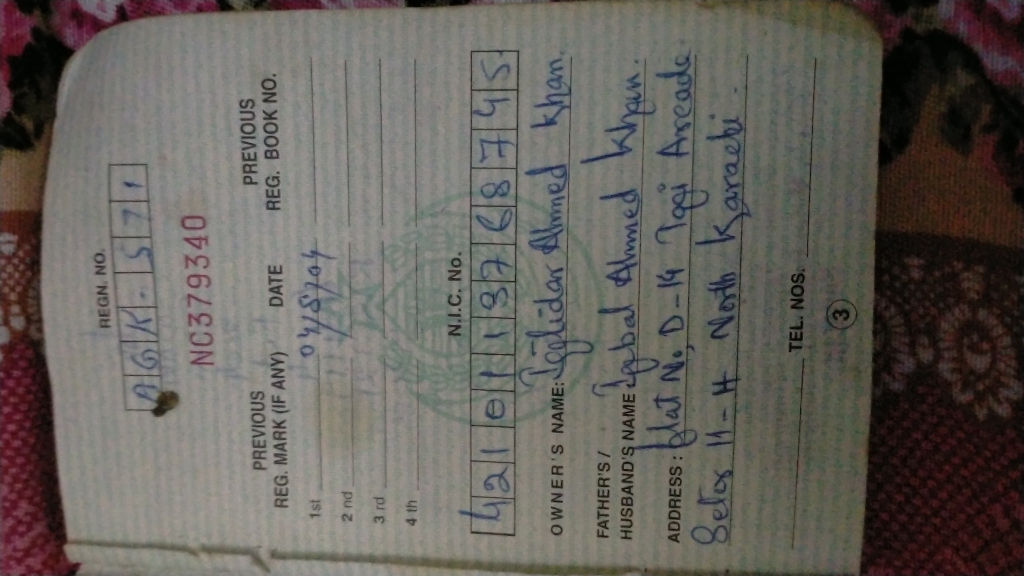 REGN. NO.
AGK-571
NC379340
PREVIOUS REG. MARK (IF ANY) DATE PREVIOUS REG. BOOK NO.
1st
2 nd
3 rd
4 th
N.I.C. No.
4210113768745
OWNER'S NAME: Ahmed Khan.
FATHER'S / HUSBAND'S NAME Iqbal Ahmed Khan.
ADDRESS: flat No, D-14 Arcade
11-H North Karachi.
TEL. NOS.
3